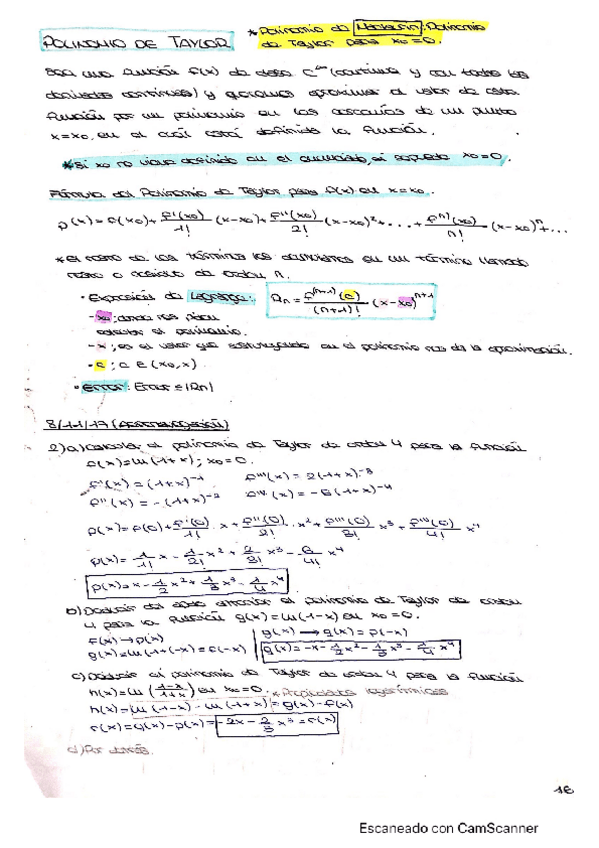 POLINOMIO DE TAYLOR
* Polinomio de Maclaurin: Polinomio
de Taylor para x₀=0.
Sea una función f(x) de clase C^∞ (continua y con todas las
derivadas continuas) y queremos aproximar el valor de esta
función por un polinomio en las cercanías de un punto
x=x₀, en el cuál está definida la función.
* Si x₀ no viene definido en el enunciado, si supone x₀=0.
Fórmula del Polinomio de Taylor para f(x) en x=x₀.
p(x)=f(x₀)+ f'(x₀)/1! (x-x₀)+ f''(x₀)/2! (x-x₀)²+...+ f^n)(x₀)/n! (x-x₀)^n+...
* el resto de los términos los en un término llamado
resto o residuo de orden n.
· Expresión de Lagrange: Rn = f^(n+1)(c)/(n+1)! (x-x₀)^n+1
- x₀; donde nos piden
calcular el polinomio.
- x; es el valor que sustituyendo en el polinomio nos da la aproximación.
- c; c ∈ (x₀,x)
· Error: Error ≤ |Rn|
8/11/17
2) a) Calcular el polinomio de Taylor de orden 4 para la función
f(x)=ln(1+x); x₀=0.
f'(x)=(1+x)^-1 f'''(x)=2(1+x)^-3
f''(x)=-(1+x)^-2 f^IV(x)=-6(1+x)^-4
p(x)=f(0)+ f'(0)/1! x+ f''(0)/2! x²+ f'''(0)/3! x³+ f^IV(0)/4! x⁴
p(x)= 1/1! x - 1/2! x²+ 2/3! x³- 6/4! x⁴
p(x)=x- 1/2 x²+ 1/3 x³- 1/4 x⁴
b) Deducir del apdo anterior el polinomio de Taylor de orden
4 para la función g(x)=ln(1-x) en x₀=0.
f(x)→p(x) g(x)→q(x)=p(-x)
g(x)=ln(1+(-x)=f(-x) q(x)=-x- 1/2 x²- 1/3 x³- 1/4 x⁴
c) Deducir el polinomio de Taylor de orden 4 para la función
h(x)=ln(1-x/1+x) en x₀=0. * Propiedades logarítmicas
h(x)=ln(1-x)-ln(1+x)=g(x)-f(x)
r(x)=q(x)-p(x)= -2x- 2/3 x³=r(x)
d) Por detrás.
16
Escaneado con CamScanner